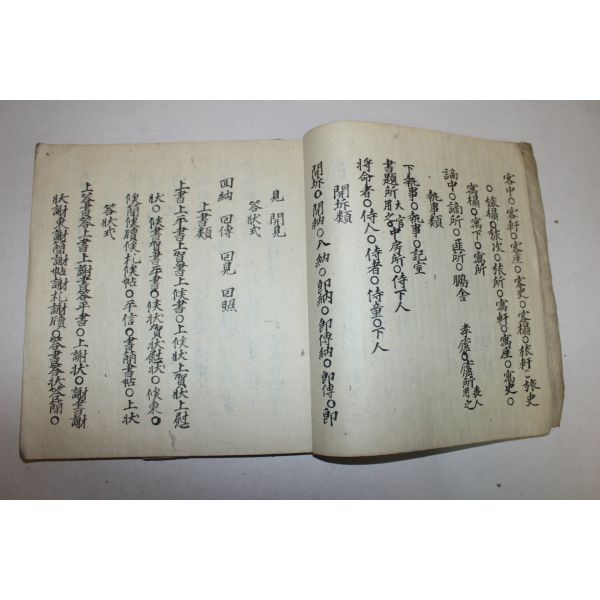 客中○客軒○客座○客史○客榻○旅軒○旅史
○旅榻○旅次○旅所○寓軒○寓座○寓史○
寓榻○寓下○寓所
謫中○謫所○匪所○鵩舍 孝廬○廬所喪人用之
執事類
下執事○執事○記室
書題所大官用之○中房所○侍下人
將命者○侍人○侍者○侍童○下人
開坼類
開坼○開納○入納○即納○即傳納○即傳○即
見 開見
答狀式
回納 回傳 回見 回照
上書類
上書○上平書○上賀書○上候書○上候狀○上賀狀○上慰
狀○候書○賀書○平書○候狀○賀狀○慰狀○候柬○
候簡○候牘○候札○候帖○平信○書簡○書帖○上狀
答狀式
上答書○答上書○上謝書○答平書○上謝狀○謝書○謝
狀○謝柬○謝簡○謝帖○謝札○謝牘○答書○答狀○答簡○